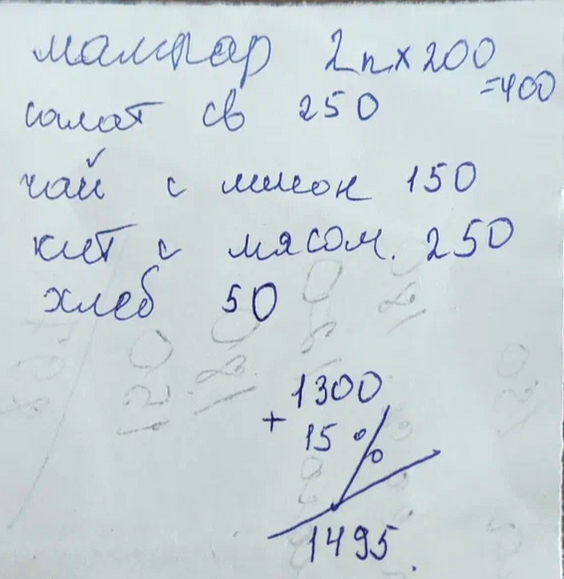 мампар 2п×200
=400
салат св 250
чай с лимон 150
кет с мясом. 250
хлеб 50
1300
+ 15%
1495.